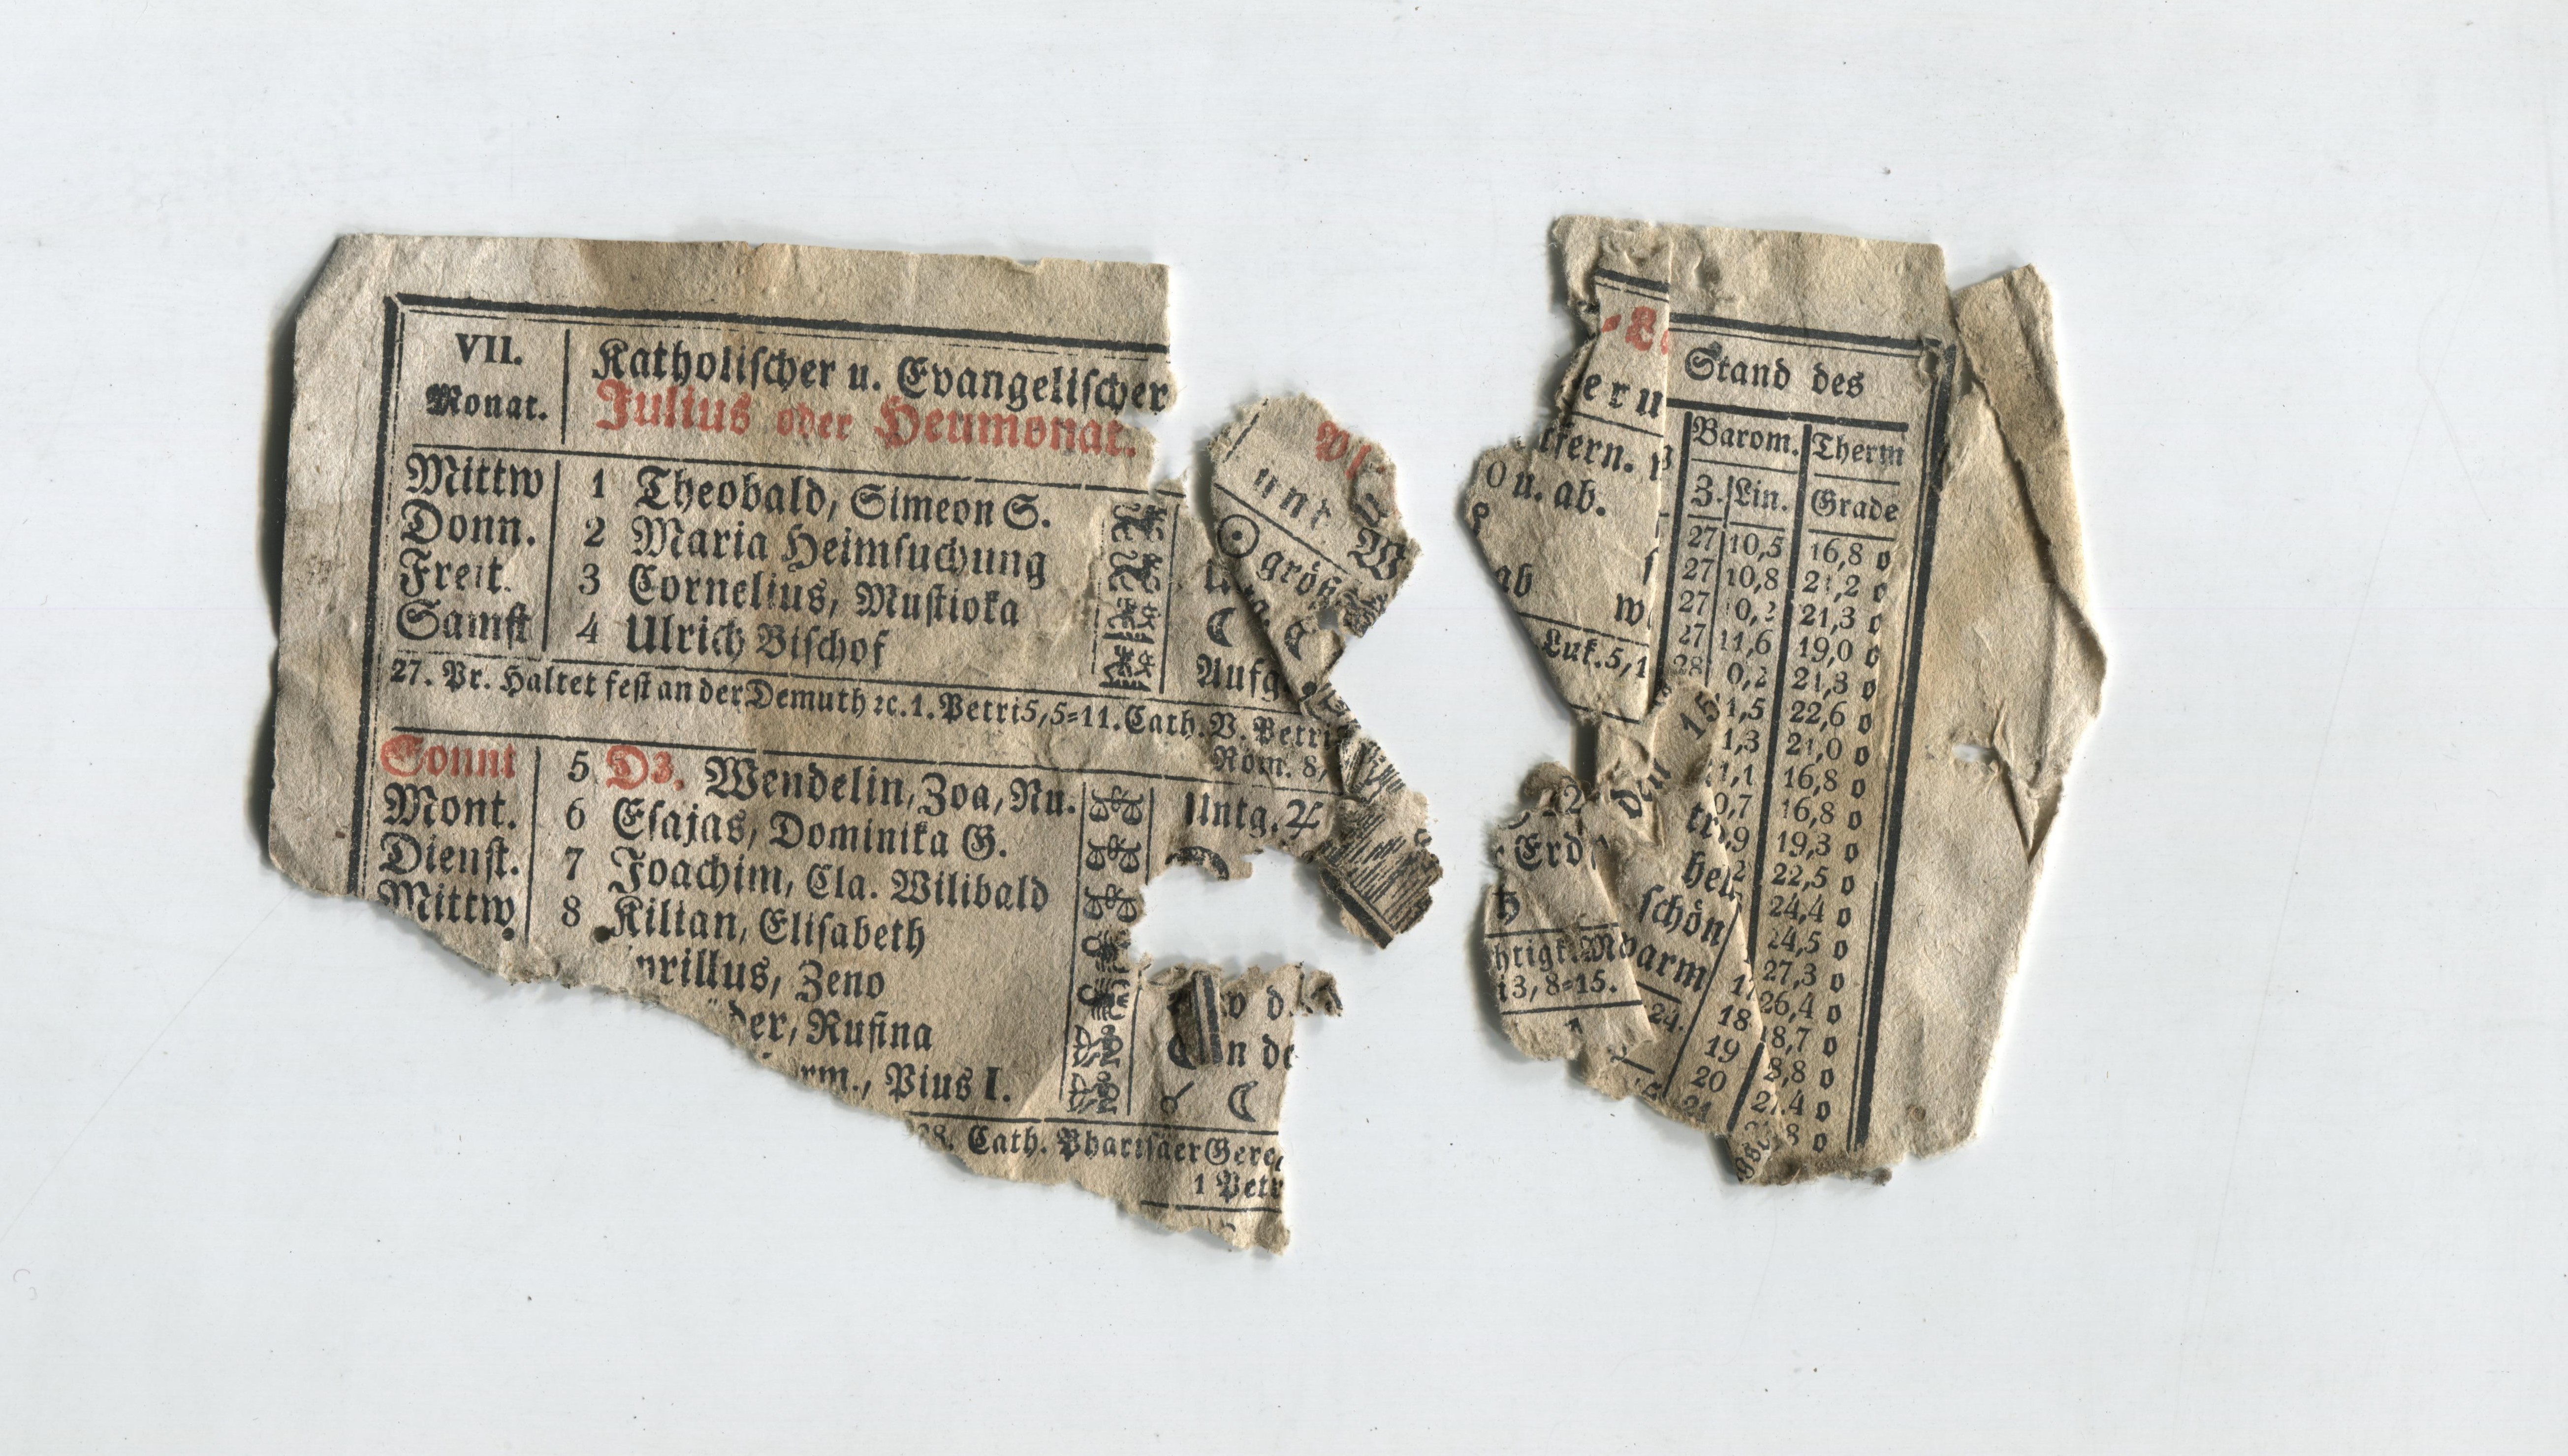 VII.
Monat.
Katholischer u. Evangelischer
Julius oder Heumonat.
Mittw 1 Theobald, Simeon S.
Donn. 2 Maria Heimsuchung
Freit. 3 Cornelius, Mustiola
Samst 4 Ulrich Bischof
Aufg
27. Pr. Haltet fest an der Demuth ꝛc. 1. Petri 5, 5=11. Cath. V. Petri
Röm. 8,
Sonnt 5 D3. Wendelin, Zoa, Nu. Untg. ♃
Mont. 6 Esajas, Dominika G.
Dienst. 7 Joachim, Cla. Wilibald
Mittw. 8 Kilian, Elisabeth
yrillus, Zeno
der, Rufina
rm., Pius I.
n de
☌ ☾
28. Cath. Pharisäer Gere
1 Petr
und
W
☉ größ
er u
tfern.
0 u. ab.
ab
w
Luk. 5, 1
12
Erd
♄
htigk.
i 3, 8=15.
15
den
tr
hell
schön
warm
24.
17
18
19
20
21
Stand des
Barom. Therm
Z. Lin. Grade
27 10,5 16,8 0
27 10,8 21,2 0
27 0,2 21,3 0
27 11,6 19,0 0
28 0,2 21,3 0
1,5 22,6 0
1,3 21,0 0
1,1 16,8 0
0,7 16,8 0
,9 19,3 0
2 22,5 0
24,4 0
24,5 0
27,3 0
26,4 0
8,7 0
8,8 0
2,4 0
8 0